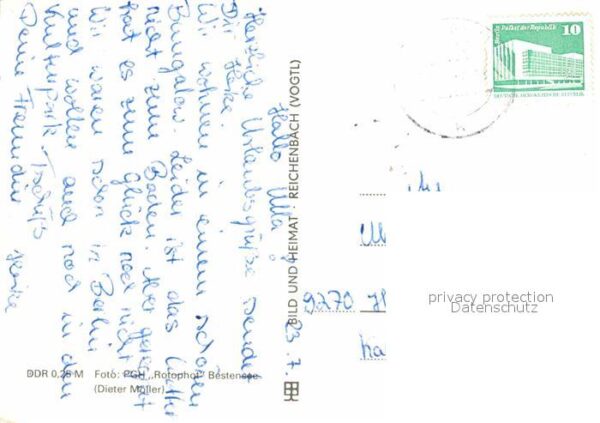 23. 7.
Hallo Ulla,
Herzliche Urlaubsgrüße sendet
Dir Heike.
Wir wohnen in einem schönen
Bungalow. Leider ist das Wetter
nicht zum Baden. Aber geregnet
hat es zum Glück noch nicht
Wir waren schon in Berlin
und wollen auch noch in den
Kulturpark. Tschüß
Deine Freundin Heike
BILD UND HEIMAT · REICHENBACH (VOGTL)
DDR 0,25 M Foto: PGH „Rotophot" Bestensee
(Dieter Möller)
Palast der Republik
10
DEUTSCHE DEMOKRATISCHE REPUBLIK
9270
privacy protection
Datenschutz